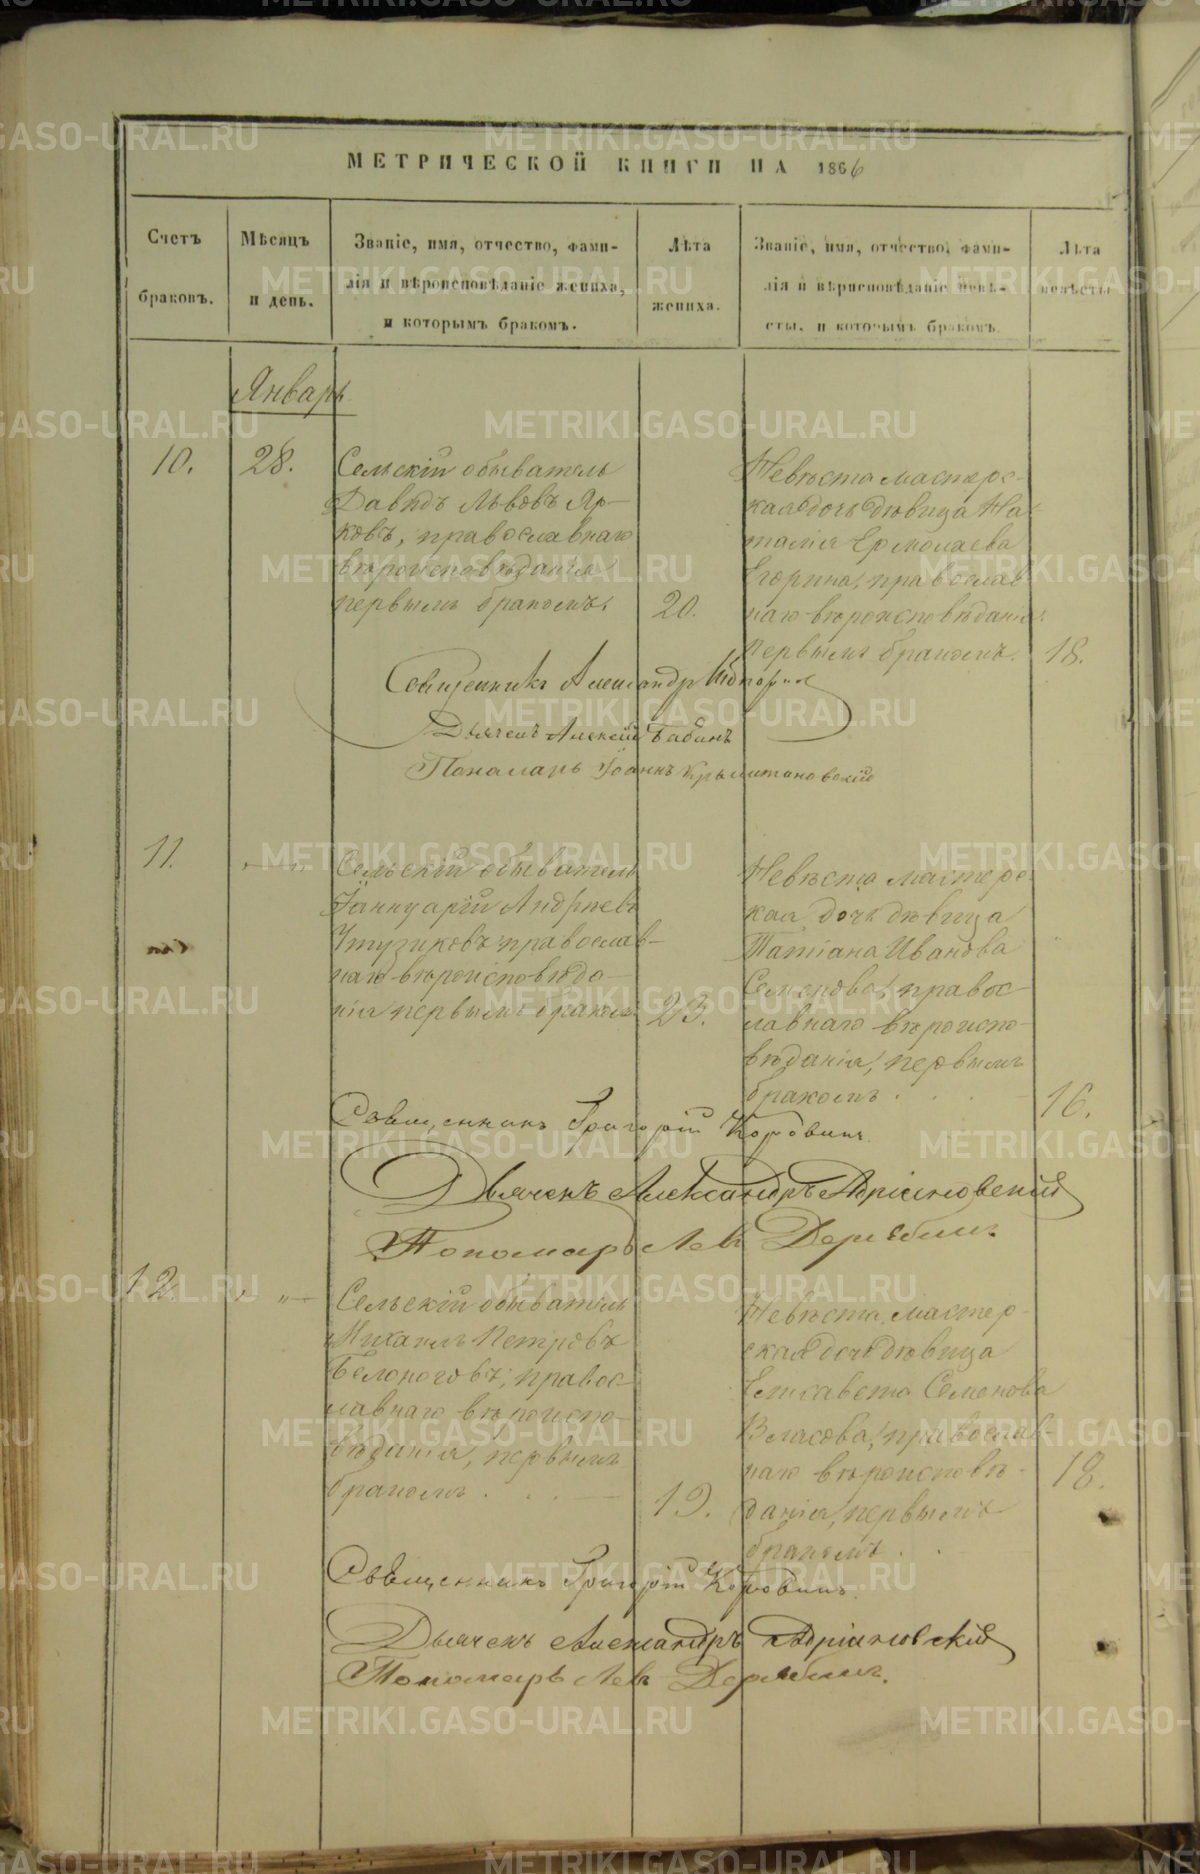 МЕТРИЧЕСКОЙ КНИГИ НА 1866
Счетъ браковъ.
Мѣсяцъ и день.
Званіе, имя, отчество, фами-
лія и вѣроисповѣданіе жениха,
и которымъ бракомъ.
Лѣта жениха.
Званіе, имя, отчество, фами-
лія и вѣрисповѣданіе невѣ-
сты, и которымъ бракомъ.
Лѣта невѣсты
Январь
10.
28.
Сельскій обыватель
Давидъ Львовъ Яр-
ковъ, православнаго
вѣроисповѣданія
первымъ бракомъ.
20.
Невѣста мастерс-
кая дочь дѣвица На-
талія Ермолаева
Егорина, православ
наго вѣроисповѣданія
первымъ бракомъ.
18.
Священникъ Александр
Дьячекъ Алексій Бабинъ
Пономарь Іоаннъ
11.
— „
Сельскій обыватель
Іаннуарій Андреевъ
православ-
наго вѣроисповѣда-
нія первымъ бракомъ
23.
Невѣста мастерс-
кая дочь дѣвица
Татіана Иванова
Семенова, правос-
лавнаго вѣроиспо-
вѣданія, первымъ
бракомъ . . . —
16.
Священникъ Григорій Коровинъ
Дьячекъ Александръ Адріановскій
Пономарь Левъ Дерябинъ.
12.
„ —
Сельскій обыватель
Михаилъ Петровъ
Белоноговъ, правос-
лавнаго вѣроиспо-
вѣданія, первымъ
бракомъ . . . —
19.
Невѣста мастер-
ская дочь дѣвица
Елисавета Семенова
Власова, православ-
наго вѣроисповѣ-
данія, первымъ
бракомъ . .
18.
Священникъ Григорій Коровинъ.
Дьячекъ Александръ Адріановскій
Пономарь Левъ Дерябинъ.
METRIKI.GASO-URAL.RU